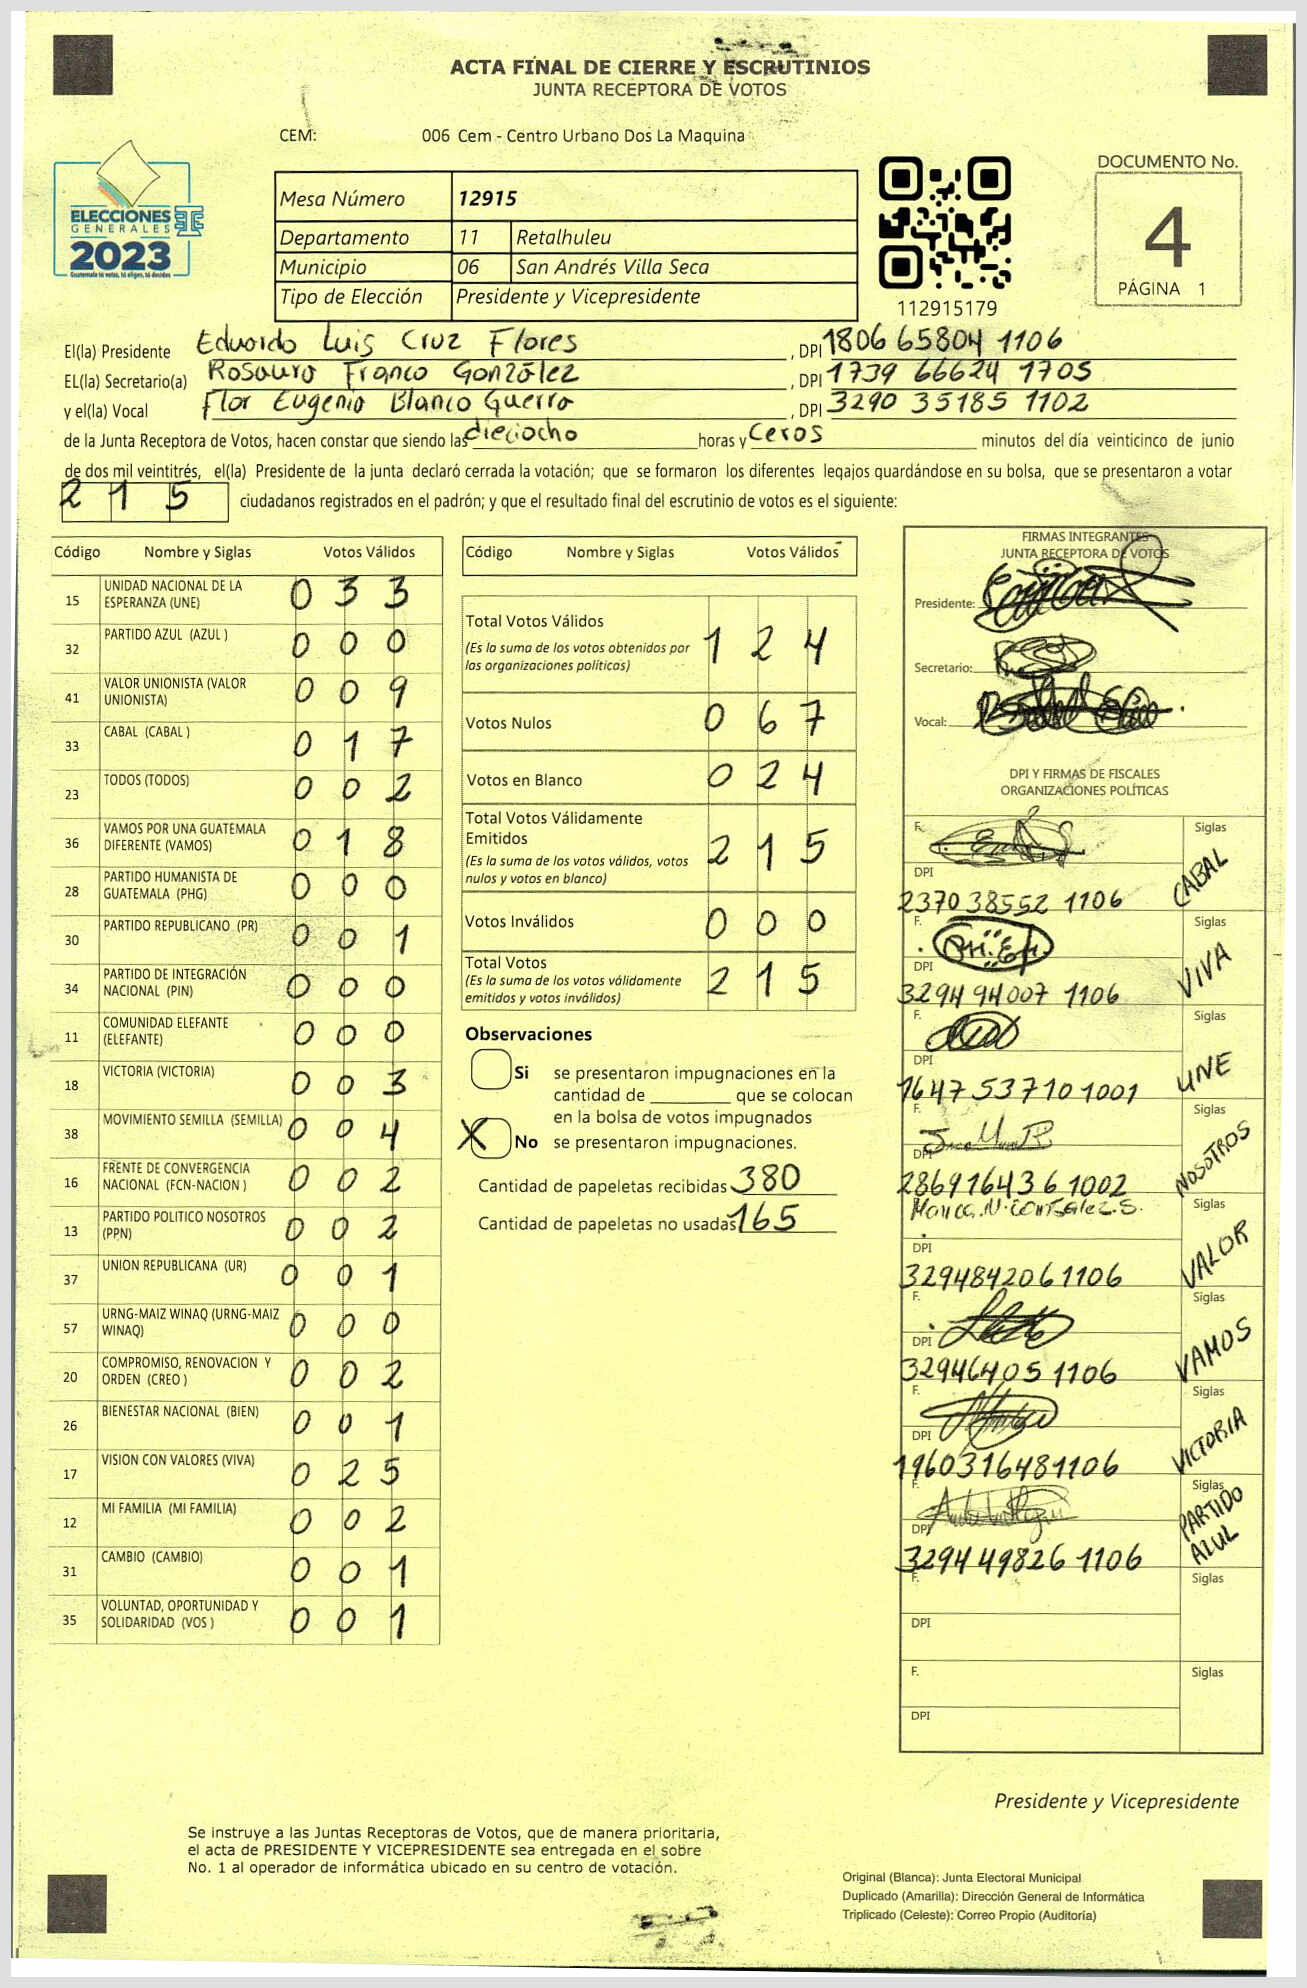 ACTA FINAL DE CIERRE Y ESCRUTINIOS
JUNTA RECEPTORA DE VOTOS
CEM: 006 Cem - Centro Urbano Dos La Maquina
ELECCIONES
GENERALES
2023
Guatemala tú votas, tú eliges, tú decides
Mesa Número 12915
Departamento 11 Retalhuleu
Municipio 06 San Andrés Villa Seca
Tipo de Elección Presidente y Vicepresidente
112915179
DOCUMENTO No.
4
PÁGINA 1
El(la) Presidente Eduardo Luis Cruz Flores , DPI 1806 65804 1106
EL(la) Secretario(a) Rosauro Franco González , DPI 1739 66624 1705
y el(la) Vocal Flor Eugenia Blanco Guerra , DPI 3290 35185 1102
de la Junta Receptora de Votos, hacen constar que siendo las dieciocho horas y Ceros minutos del día veinticinco de junio
de dos mil veintitrés, el(la) Presidente de la junta declaró cerrada la votación; que se formaron los diferentes legajos guardándose en su bolsa, que se presentaron a votar
215 ciudadanos registrados en el padrón; y que el resultado final del escrutinio de votos es el siguiente:
Código Nombre y Siglas Votos Válidos
15 UNIDAD NACIONAL DE LA ESPERANZA (UNE) 0 3 3
32 PARTIDO AZUL (AZUL ) 0 0 0
41 VALOR UNIONISTA (VALOR UNIONISTA) 0 0 9
33 CABAL (CABAL ) 0 1 7
23 TODOS (TODOS) 0 0 2
36 VAMOS POR UNA GUATEMALA DIFERENTE (VAMOS) 0 1 8
28 PARTIDO HUMANISTA DE GUATEMALA (PHG) 0 0 0
30 PARTIDO REPUBLICANO (PR) 0 0 1
34 PARTIDO DE INTEGRACIÓN NACIONAL (PIN) 0 0 0
11 COMUNIDAD ELEFANTE (ELEFANTE) 0 0 0
18 VICTORIA (VICTORIA) 0 0 3
38 MOVIMIENTO SEMILLA (SEMILLA) 0 0 4
16 FRENTE DE CONVERGENCIA NACIONAL (FCN-NACION ) 0 0 2
13 PARTIDO POLITICO NOSOTROS (PPN) 0 0 2
37 UNION REPUBLICANA (UR) 0 0 1
57 URNG-MAIZ WINAQ (URNG-MAIZ WINAQ) 0 0 0
20 COMPROMISO, RENOVACION Y ORDEN (CREO ) 0 0 2
26 BIENESTAR NACIONAL (BIEN) 0 0 1
17 VISION CON VALORES (VIVA) 0 2 5
12 MI FAMILIA (MI FAMILIA) 0 0 2
31 CAMBIO (CAMBIO) 0 0 1
35 VOLUNTAD, OPORTUNIDAD Y SOLIDARIDAD (VOS ) 0 0 1
Código Nombre y Siglas Votos Válidos
Total Votos Válidos 1 2 4
(Es la suma de los votos obtenidos por
las organizaciones políticas)
Votos Nulos 0 6 7
Votos en Blanco 0 2 4
Total Votos Válidamente
Emitidos 2 1 5
(Es la suma de los votos válidos, votos
nulos y votos en blanco)
Votos Inválidos 0 0 0
Total Votos 2 1 5
(Es la suma de los votos válidamente
emitidos y votos inválidos)
Observaciones
Si se presentaron impugnaciones en la
cantidad de ________ que se colocan
en la bolsa de votos impugnados
X No se presentaron impugnaciones.
Cantidad de papeletas recibidas 380
Cantidad de papeletas no usadas 165
FIRMAS INTEGRANTES
JUNTA RECEPTORA DE VOTOS
Presidente:
Secretario:
Vocal:
DPI Y FIRMAS DE FISCALES
ORGANIZACIONES POLÍTICAS
F. Siglas
DPI CABAL
2370 38552 1106
F. Siglas
DPI VIVA
3294 94007 1106
F. Siglas
DPI UNE
1647 53710 1001
F. Siglas
DPI NOSOTROS
2869 16436 1002
Siglas
DPI VALOR
3294842061106
F. Siglas
DPI VAMOS
32946405 1106
F. Siglas
DPI VICTORIA
1960316481106
F. Siglas
DPI PARTIDO AZUL
3294 49826 1106
F. Siglas
DPI
F. Siglas
DPI
Presidente y Vicepresidente
Se instruye a las Juntas Receptoras de Votos, que de manera prioritaria,
el acta de PRESIDENTE Y VICEPRESIDENTE sea entregada en el sobre
No. 1 al operador de informática ubicado en su centro de votación.
Original (Blanca): Junta Electoral Municipal
Duplicado (Amarilla): Dirección General de Informática
Triplicado (Celeste): Correo Propio (Auditoría)